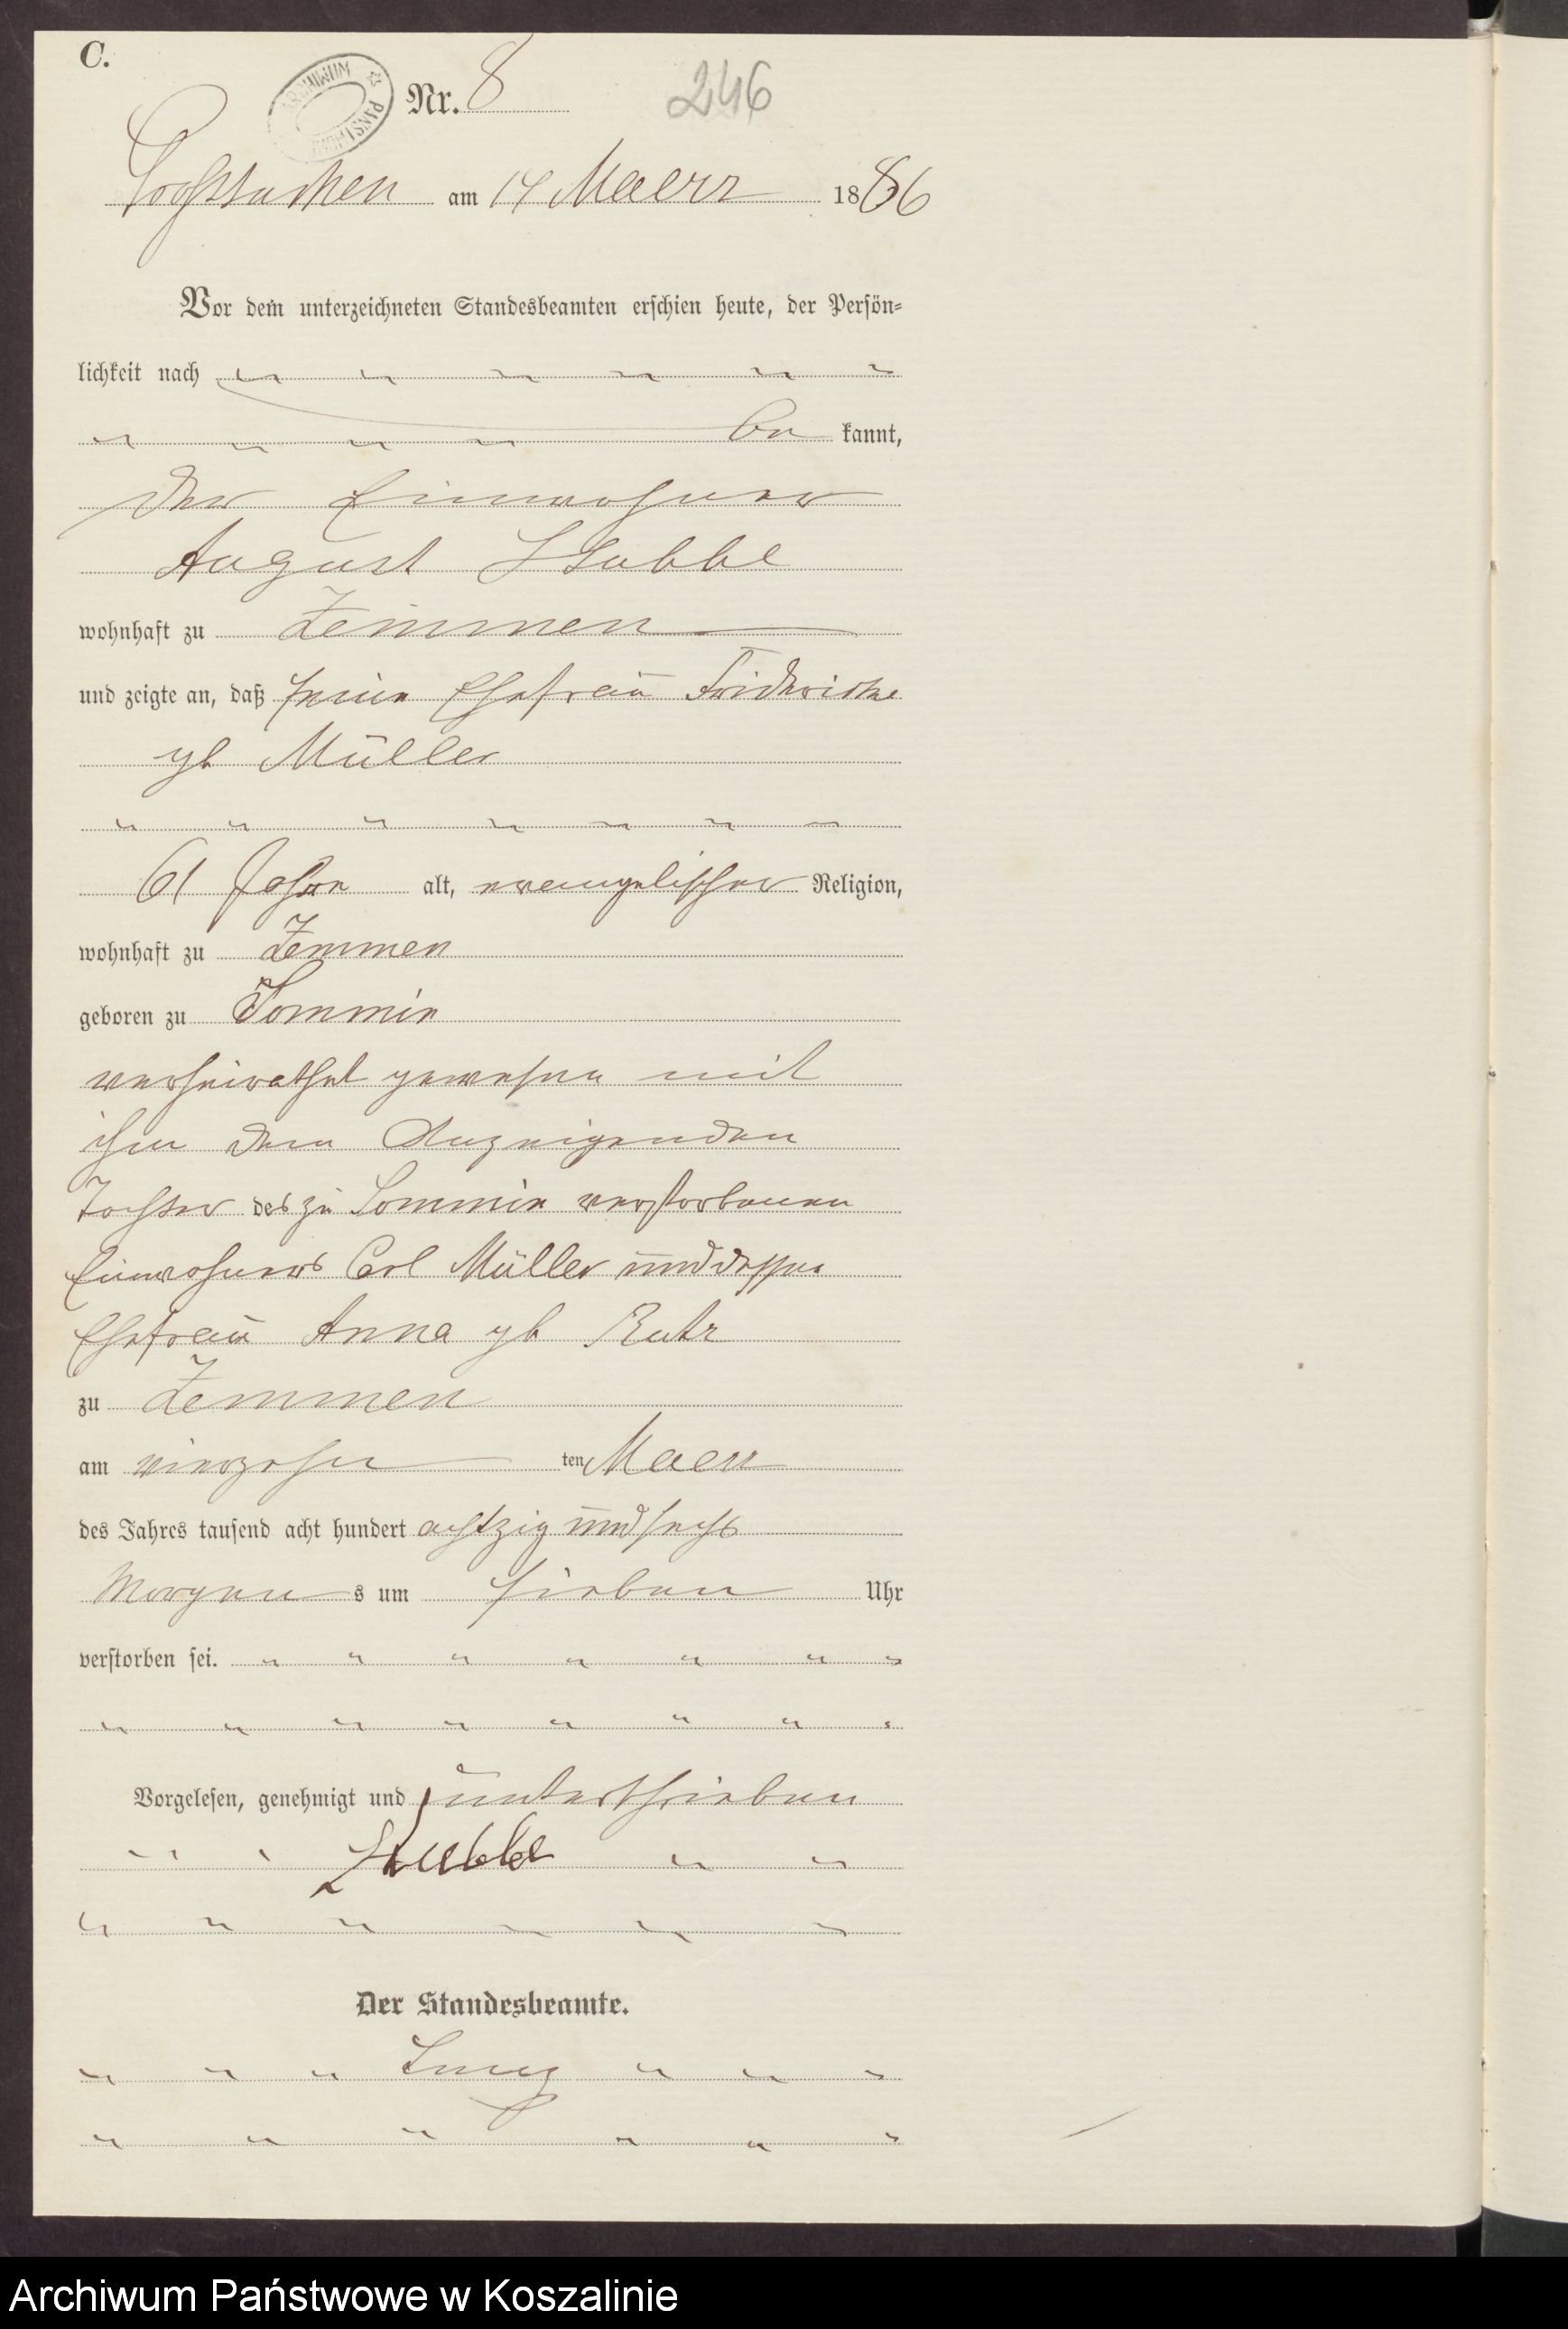 C.
ARCHIWUM PAŃSTWOWE
Nr. 8 246
am 14 Maerz 1886
Vor dem unterzeichneten Standesbeamten erschien heute, der Persön-
lichkeit nach
be kannt,
der Einwohner
August Stubbe
wohnhaft zu Zemmen
und zeigte an, daß seine Ehefrau Friderike
gb Müller
61 Jahre alt, evangelischer Religion,
wohnhaft zu Zemmen
geboren zu Sommin
verheirathet gewesen mit
ihm dem Anzeigenden
Tochter des zu Sommin verstorbenen
Einwohners Carl Müller und dessen
Ehefrau Anna gb
zu Zemmen
am vierzehn ten Maerz
des Jahres tausend acht hundert achtzig und sechs
Morgen s um sieben Uhr
verstorben sei.
Vorgelesen, genehmigt und unterschrieben
Stubbe
Der Standesbeamte.
Archiwum Państwowe w Koszalinie